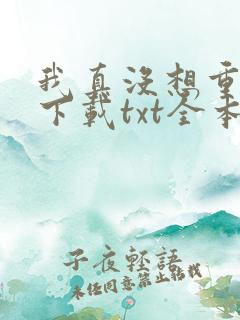 我真没想重
下载txt全本
子夜轻语
未经同意禁止转载